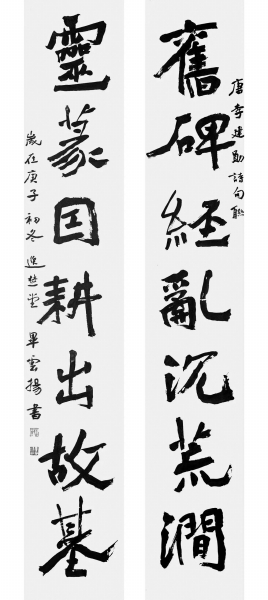 唐李建勛詩句聯
舊碑經亂沉荒澗
靈篆囙耕出故基
歲在庚子初冬 堂 畢雲揚書